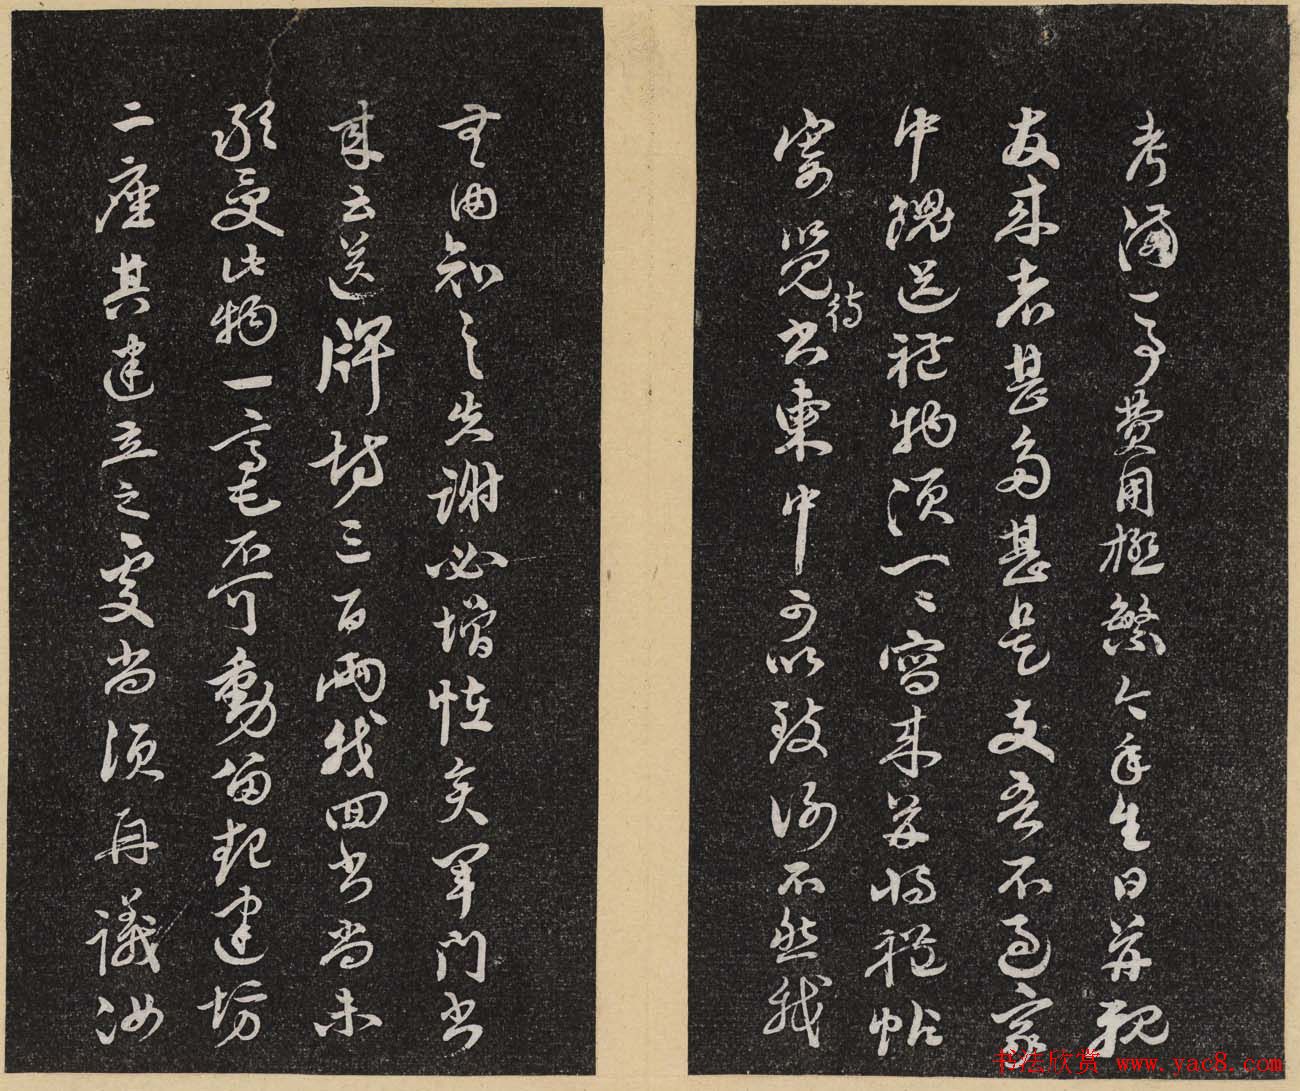 考滿一事費用極繁今年生日并親
友來者甚多甚是支吾不過家
中餽送禮物須一一寫來并將禮帖
寄覽待書柬中可以致謝不然我
無由知之失謝必增怪矣軍門書
來云送牌坊三百兩我回書尚未
受此物一毫不可動留起建坊
二座其建立之處尚須再議汝
书法欣赏 www.yac8.com